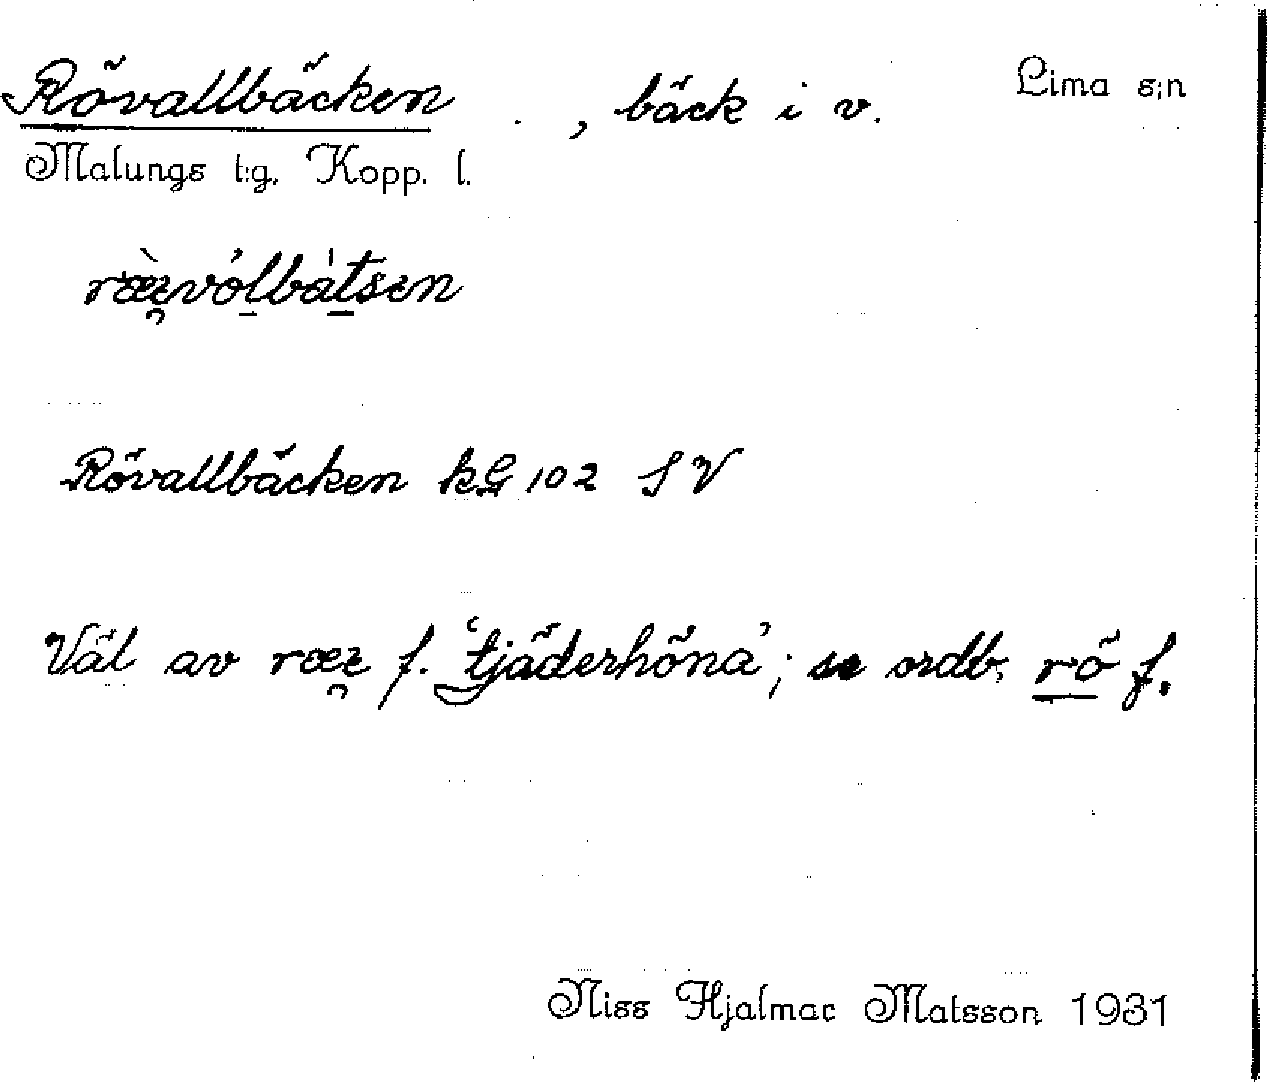 Rövallbäcken , bäck i v. Lima s:n
Malungs t:g. Kopp. l.
Rövallbäcken kG 102 SV
Väl av f. 'tjäderhöna'; se ordb. rö f.
Niss Hjalmar Matsson 1931